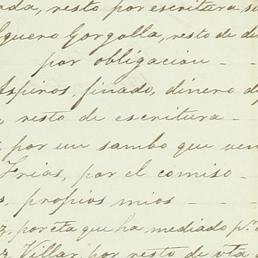 ada, resto por escritura su
guero Gorgolla, resto de di
por obligacion - -
Espiros, finado, dinero de
, resto de escritura - -
por un sambo que ven
Frias, por el comiso -
s, propios mios - -
z, por cta que ha mediado p.r
z Villar por resto de vta